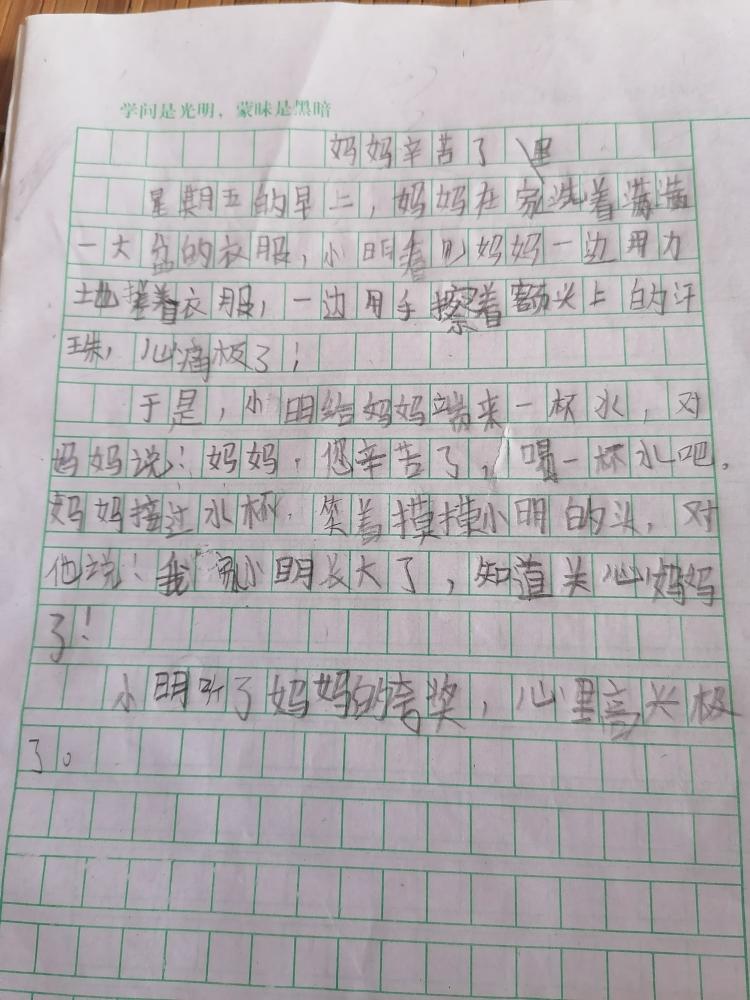 学问是光明，蒙昧是黑暗
妈妈辛苦了 里
星期五的早上，妈妈在家洗着满满
一大盆的衣服，小明看见妈妈一边用力
地搓着衣服，一边用手擦着额头上的汗
珠，心痛极了！
于是，小明给妈妈端来一杯水，对
妈妈说：妈妈，您辛苦了，喝一杯水吧。
妈妈接过水杯，笑着摸摸小明的头，对
他说：我家小明长大了，知道关心妈妈
了！
小明听了妈妈的夸奖，心里高兴极
了。